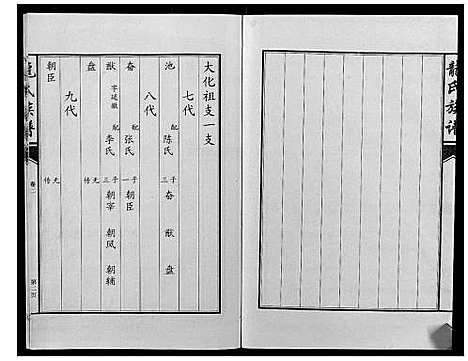 龍氏族譜
大化祖支一支
七代
池 配 陈氏 子三 奋 猷 盘
八代
奋 配 张氏 子一 朝臣
猷 字廷徽 配 李氏 子三 朝宰 朝凤 朝辅
盘 无传
九代
朝臣 无传
龍氏族譜 卷二 第二页